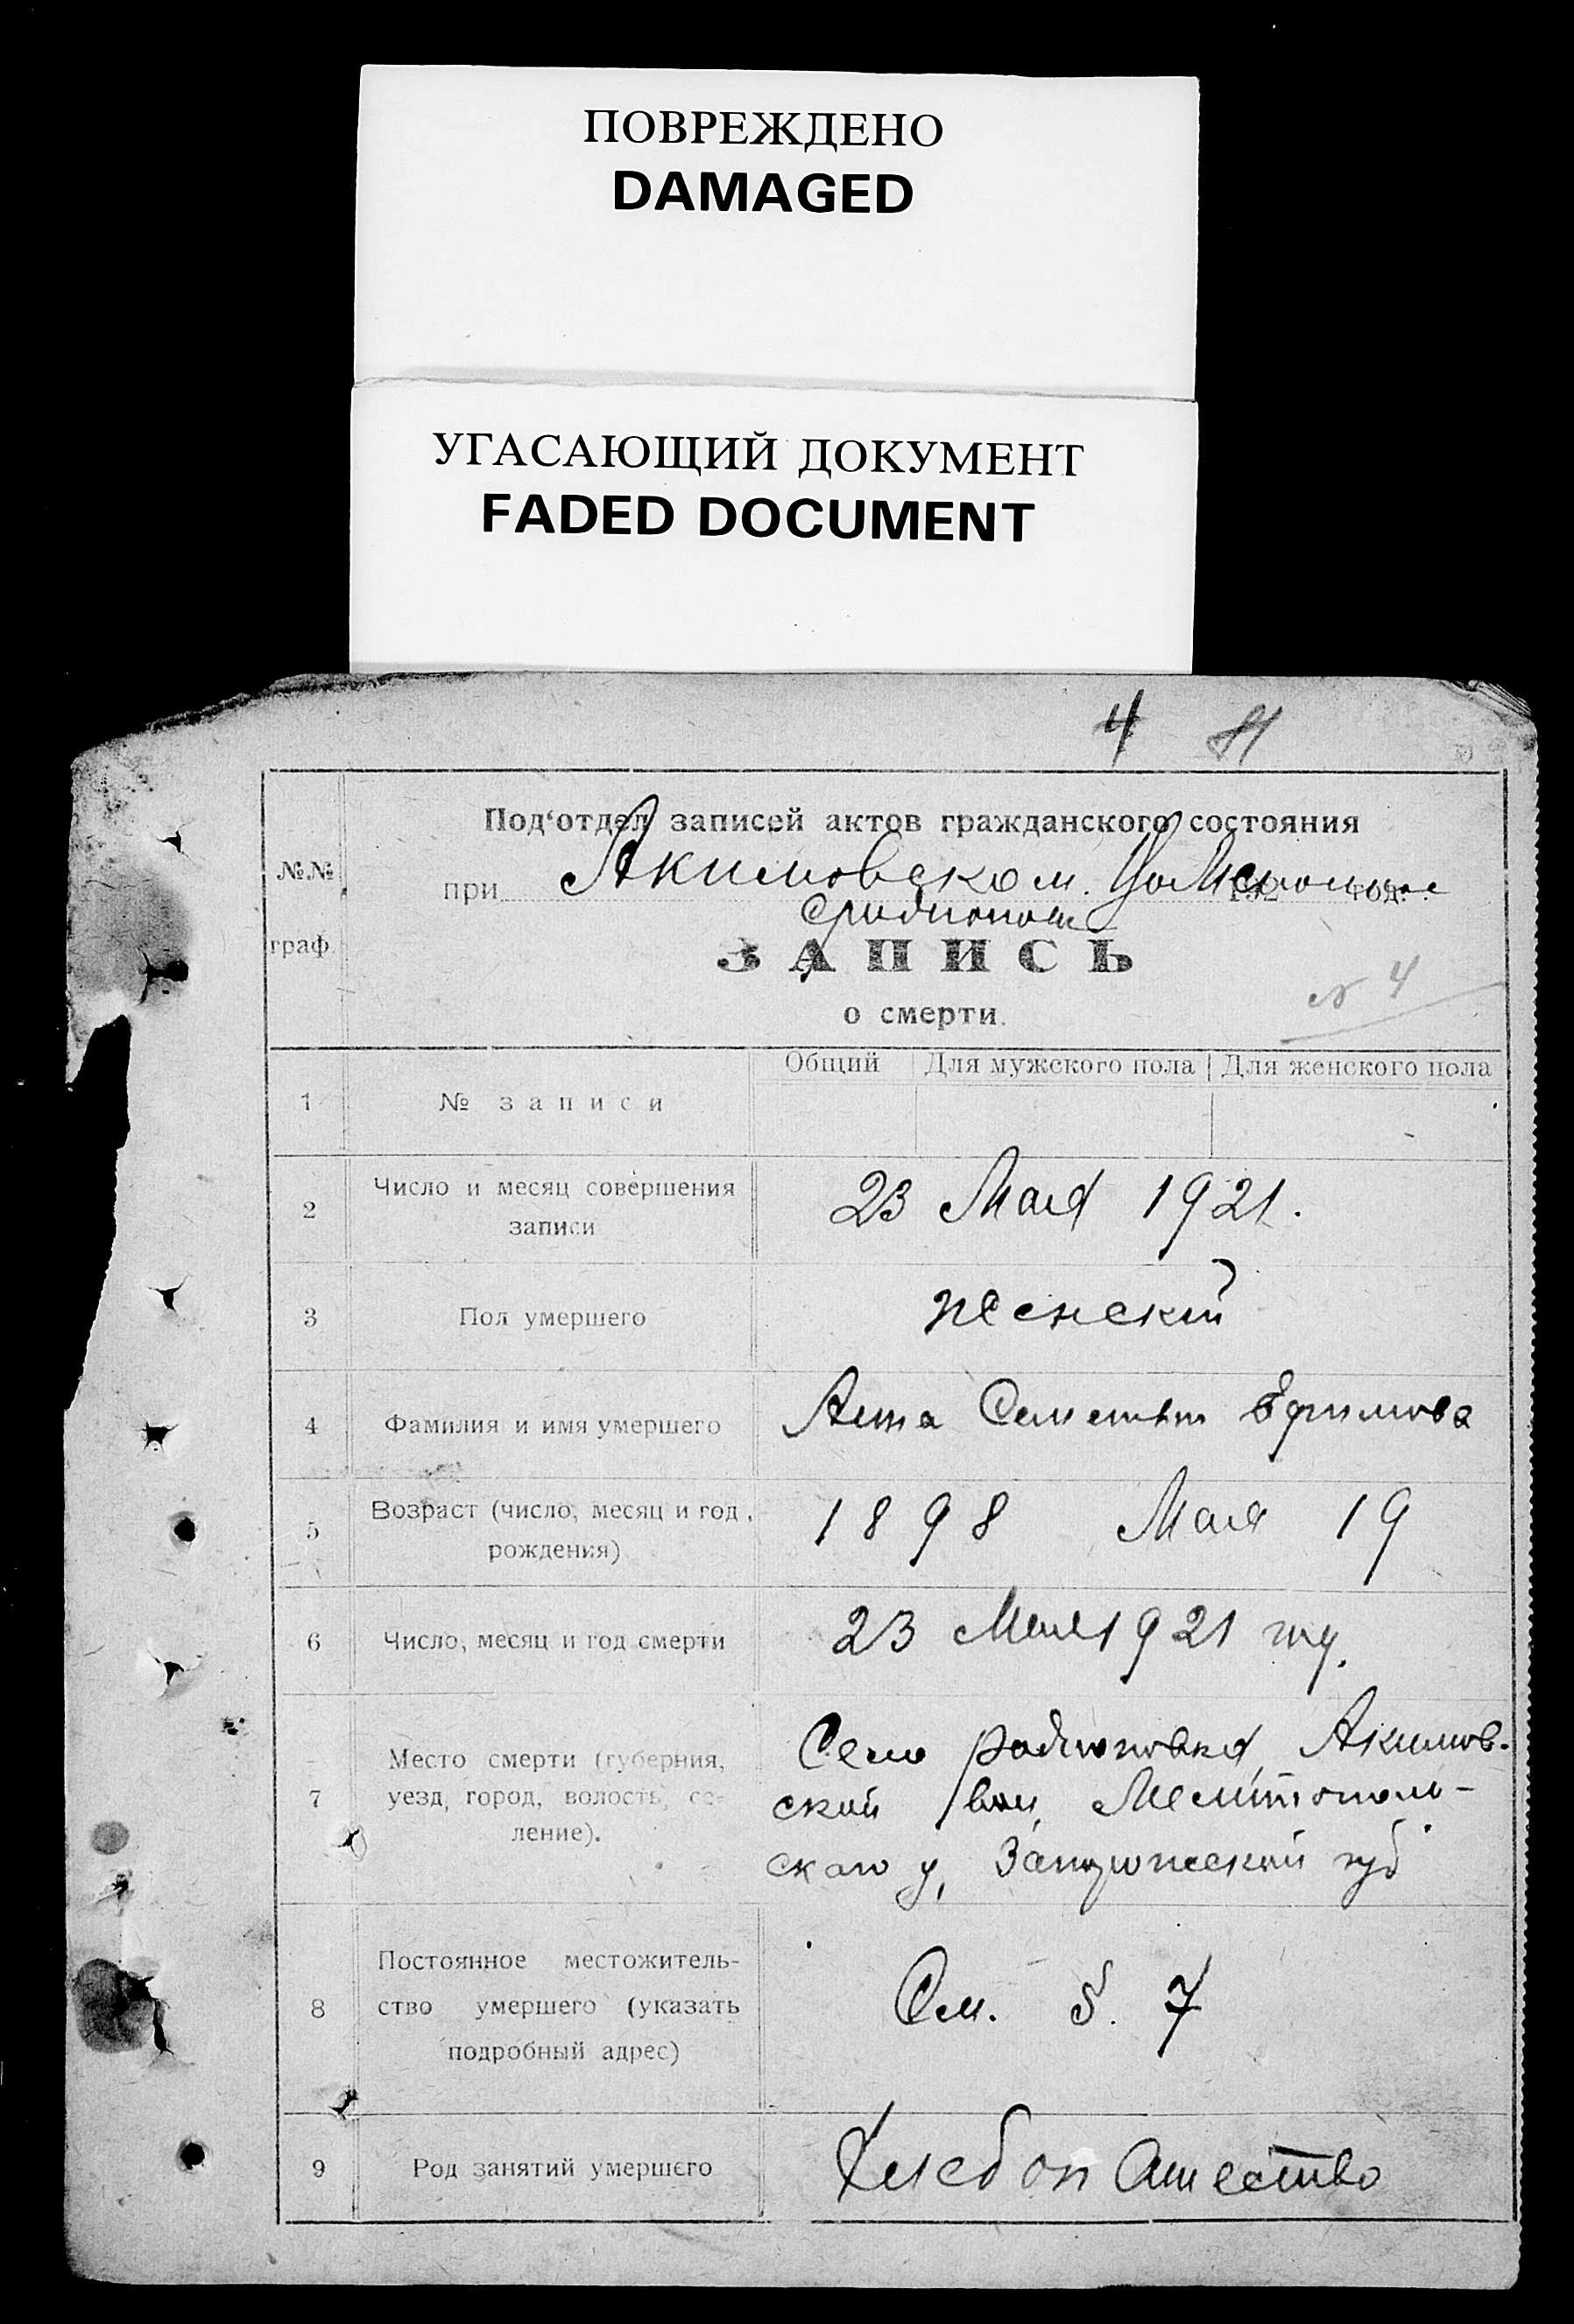 ПОВРЕЖДЕНО
DAMAGED
УГАСАЮЩИЙ ДОКУМЕНТ
FADED DOCUMENT
4
Под‘отдел записей актов гражданского состояния
№№ граф.
при Акимовском 192 год.
ЗАПИСЬ
№ 4
о смерти.
Общий Для мужского пола Для женского пола
1 № записи
2 Число и месяц совершения
записи
23 Мая 1921.
3 Пол умершего женский
4 Фамилия и имя умершего Анна Ефимова
5 Возраст (число, месяц и год
рождения)
1898 Мая 19
6 Число, месяц и год смерти 23 Мая 1921 году.
7 Место смерти (губерния,
уезд, город, волость, се-
ление).
Село Родионовка, Акимов-
ской вол, Мелитополь-
ского у, Запорожской губ
8 Постоянное местожитель-
ство умершего (указать
подробный адрес)
См. §. 7
9 Род занятий умершего Хлебопашество